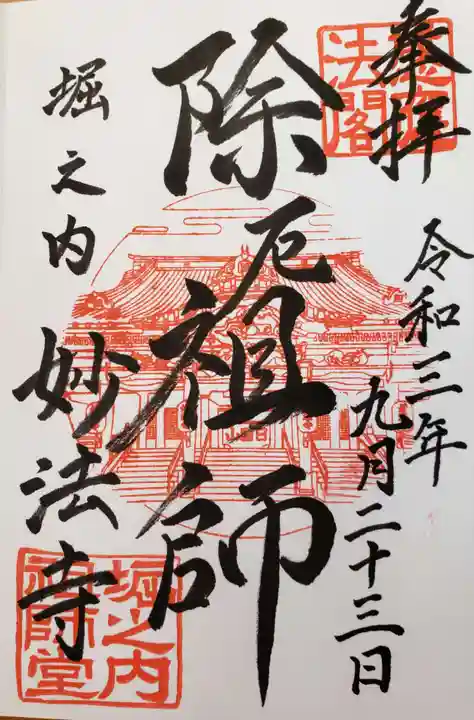 奉拝
令和三年
九月二十三日
除厄祖師
堀之内
妙法寺
法閣
堀之内
祖師堂